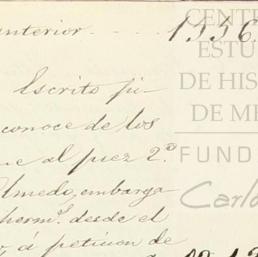 anterior 1556
CENT
ESTU
DE HIS
DE ME
FUND
Carlo
Escrito ji-
conoce de los
ue al juez 2º
lmedo, embarga
herm.s desde el
, á peticion de